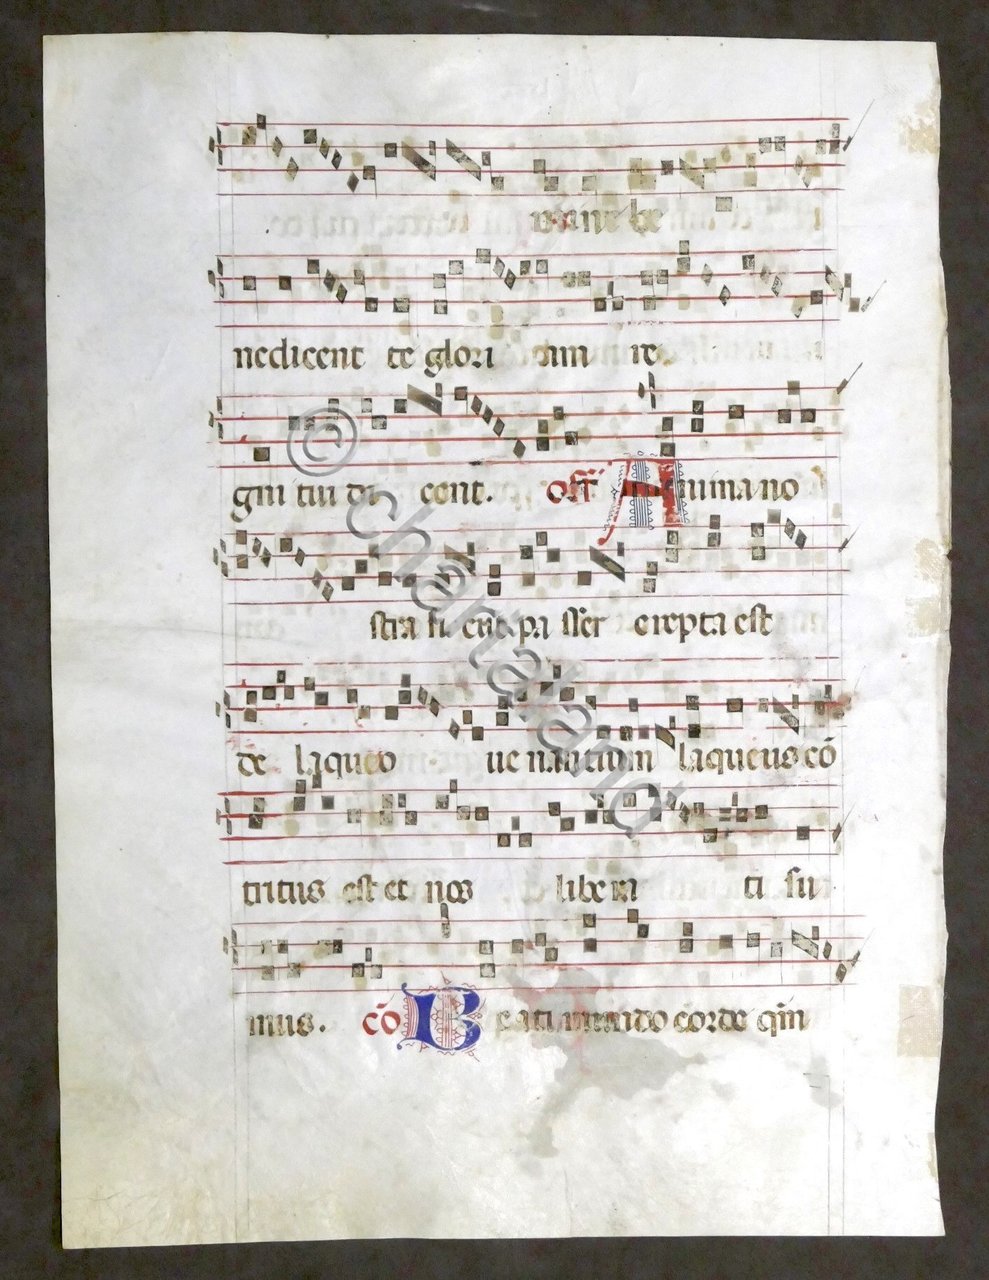 be
nedicent te glori am re
gni tui di cent. off Anima no
stra si cut pa sser erepta est
de laqueo ue nantium laqueus cō
tritus est et nos libera ti su
mus. cō Beati mundo corde qm̄
© chartaland